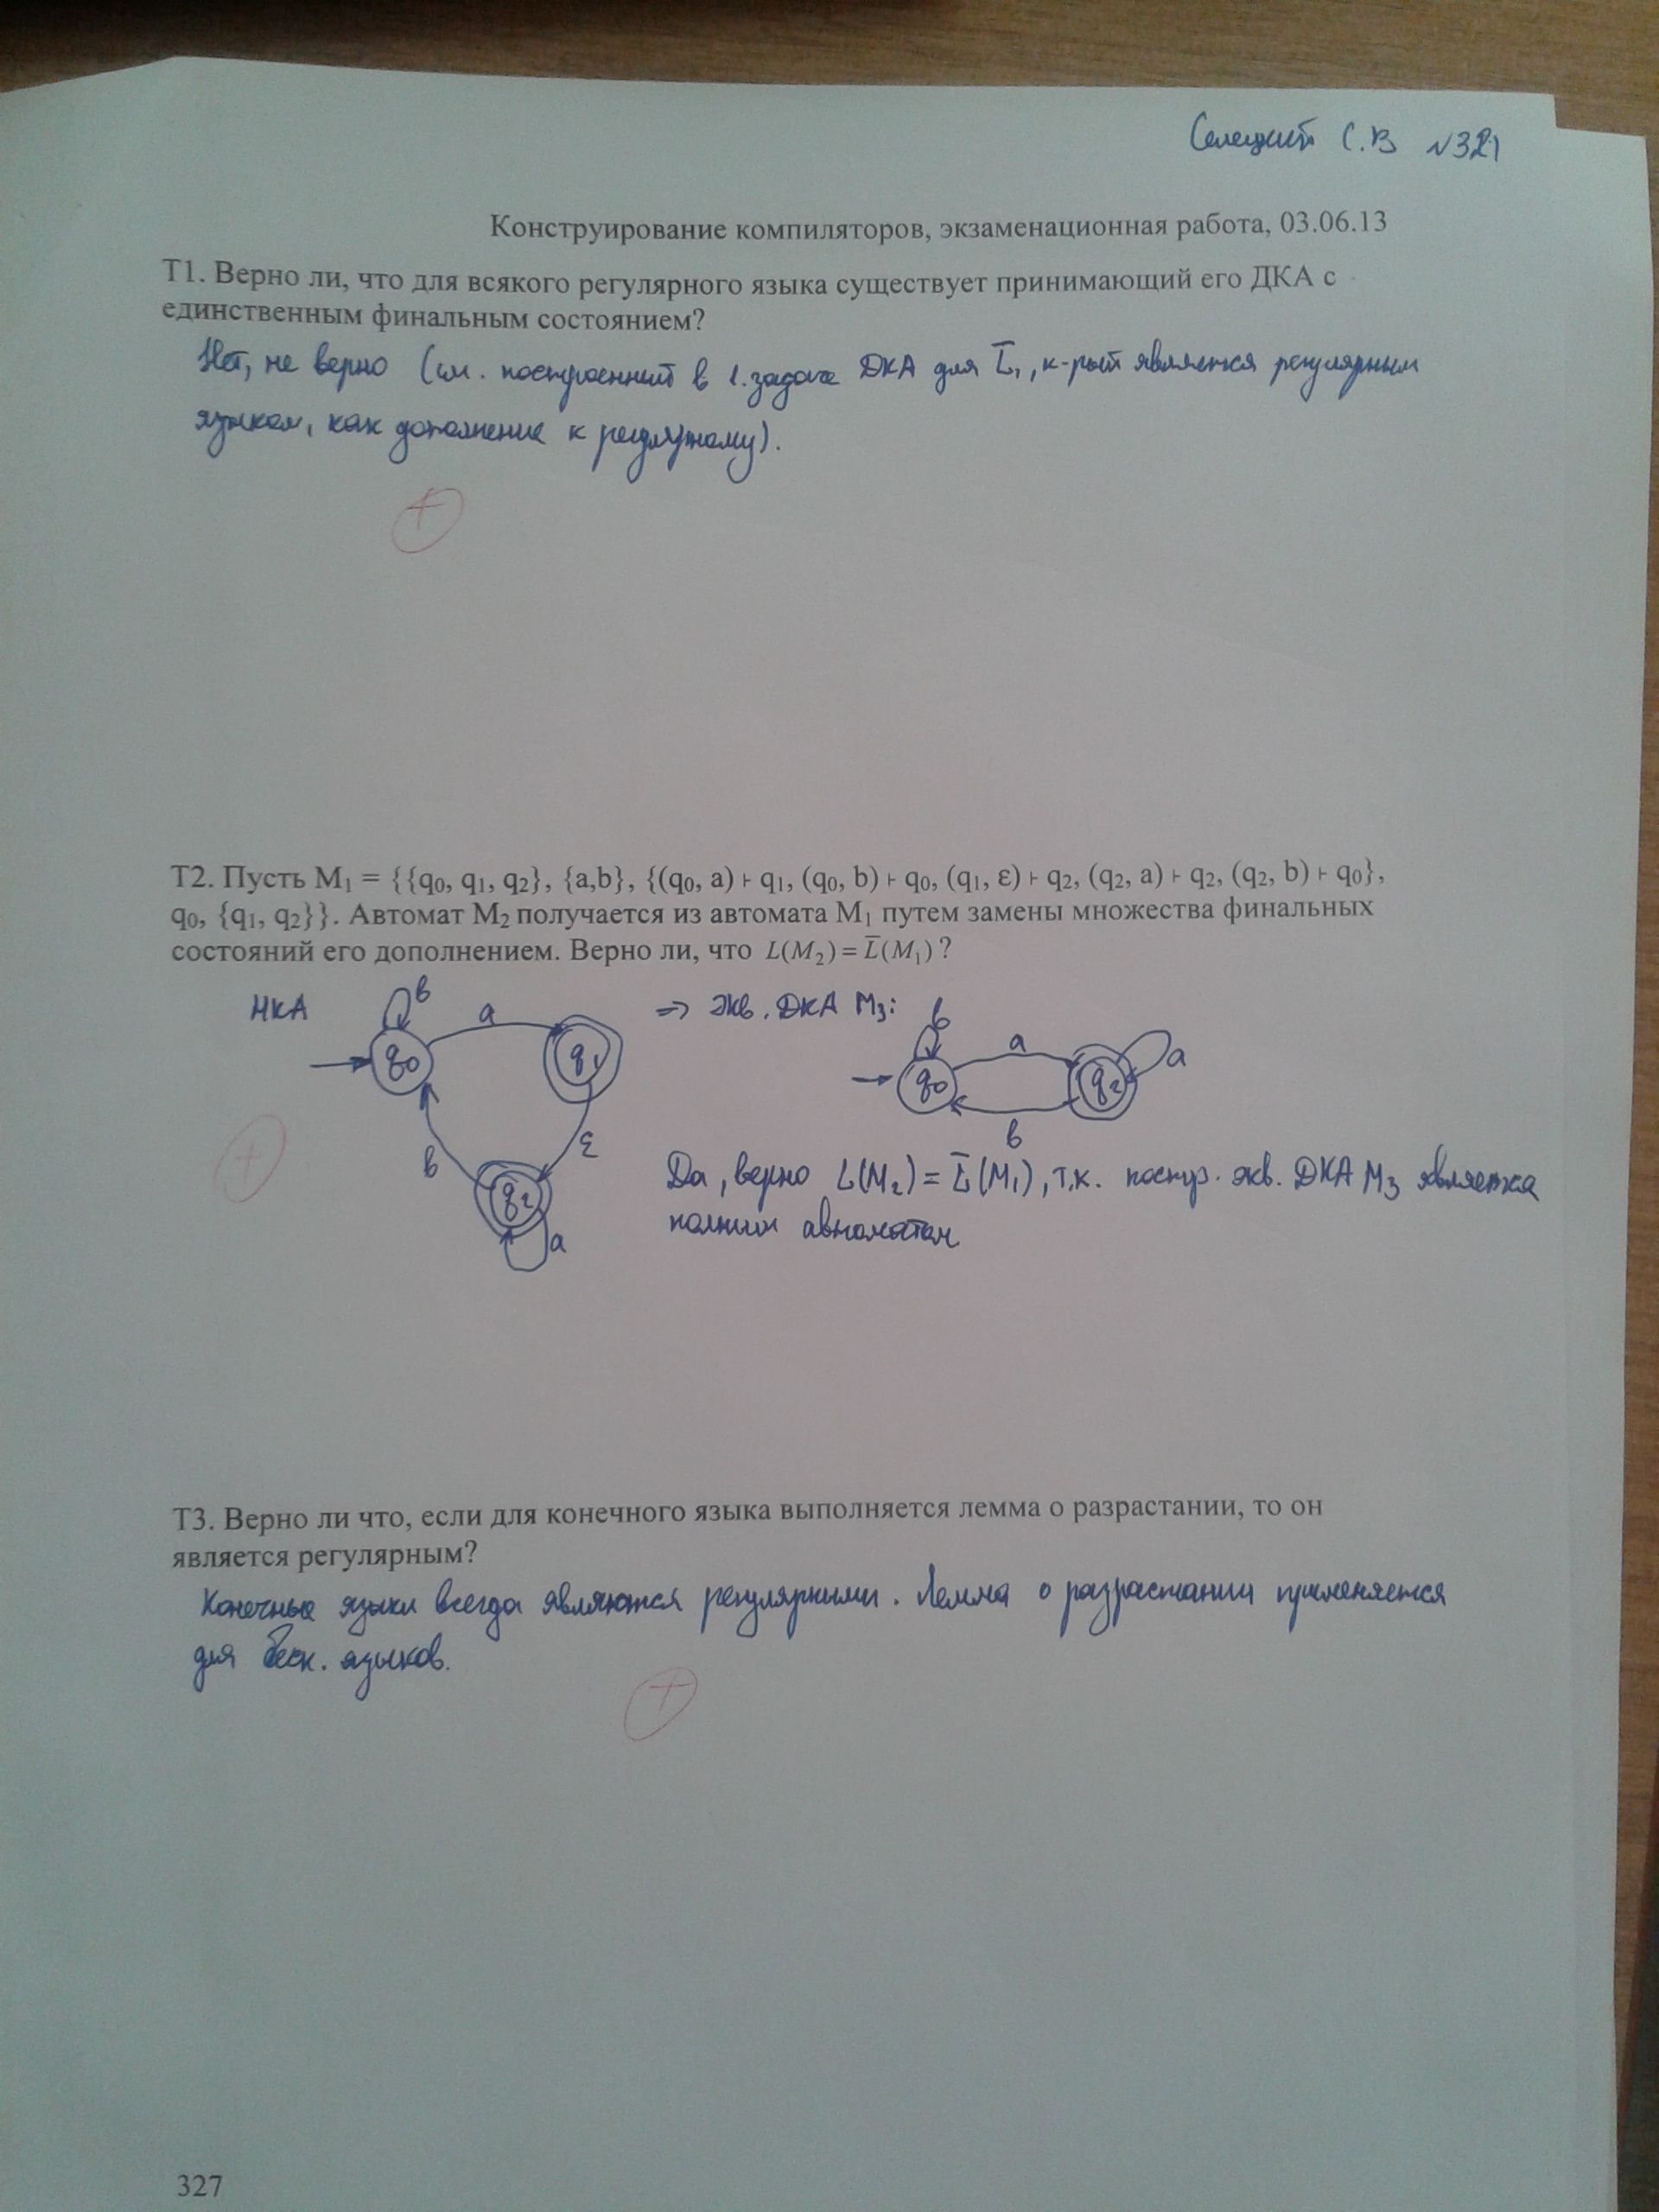 Селецкий С.В №321
Конструирование компиляторов, экзаменационная работа, 03.06.13
Т1. Верно ли, что для всякого регулярного языка существует принимающий его ДКА с
единственным финальным состоянием?
Нет, не верно (см. построенный в 1. задаче ДКА для L̅₁, к-рый является регулярным
языком, как дополнение к регулярному).
+
Т2. Пусть M₁ = {{q₀, q₁, q₂}, {a,b}, {(q₀, a) ⊦ q₁, (q₀, b) ⊦ q₀, (q₁, ε) ⊦ q₂, (q₂, a) ⊦ q₂, (q₂, b) ⊦ q₀},
q₀, {q₁, q₂}}. Автомат M₂ получается из автомата M₁ путем замены множества финальных
состояний его дополнением. Верно ли, что L(M₂) = L̅(M₁) ?
НКА
b
a
q₀
q₁
ε
b
q₂
a
=> экв. ДКА M₃:
b
a
a
q₀
q₂
b
+
Да, верно L(M₂) = L̅(M₁), т.к. постр. экв. ДКА M₃ является
полным автоматом
Т3. Верно ли что, если для конечного языка выполняется лемма о разрастании, то он
является регулярным?
Конечные языки всегда являются регулярными. Лемма о разрастании применяется
для беск. языков.
+
327